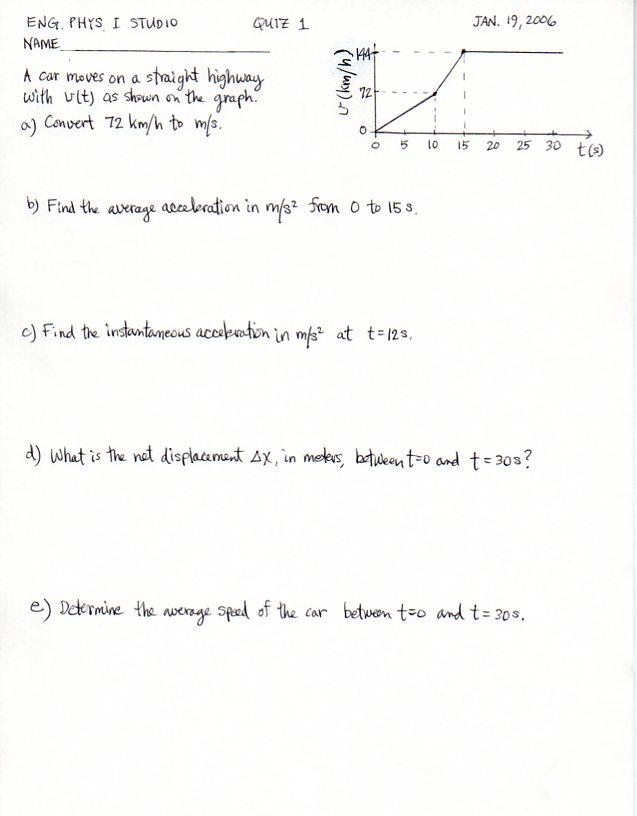 ENG. PHYS. I STUDIO QUIZ 1 JAN. 19, 2006
NAME
A car moves on a straight highway
with v(t) as shown on the graph.
a) Convert 72 km/h to m/s.
v (km/h)
144
72
0
0 5 10 15 20 25 30 t(s)
b) Find the average acceleration in m/s² from 0 to 15 s.
c) Find the instantaneous acceleration in m/s² at t=12s.
d) What is the net displacement Δx, in meters, between t=0 and t=30s?
e) Determine the average speed of the car between t=0 and t=30s.